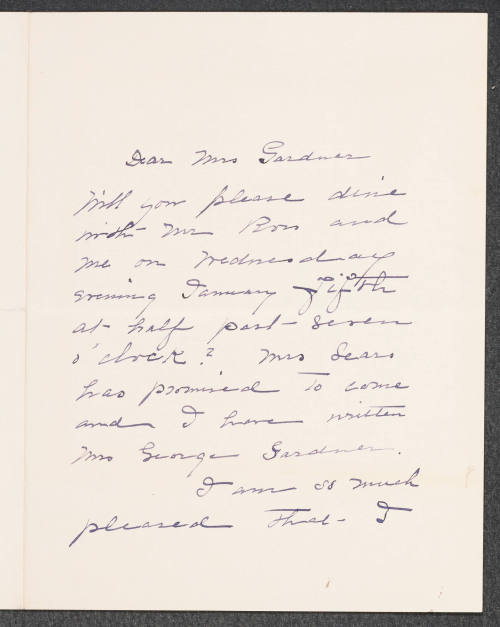 Dear Mrs Gardner
Will you please dine
with Mr Ross and
me on Wednesday
evening January fifth
at half past seven
o'clock? Mrs Sears
has promised to come
and I have written
Mrs George Gardner.
I am so much
pleased that I